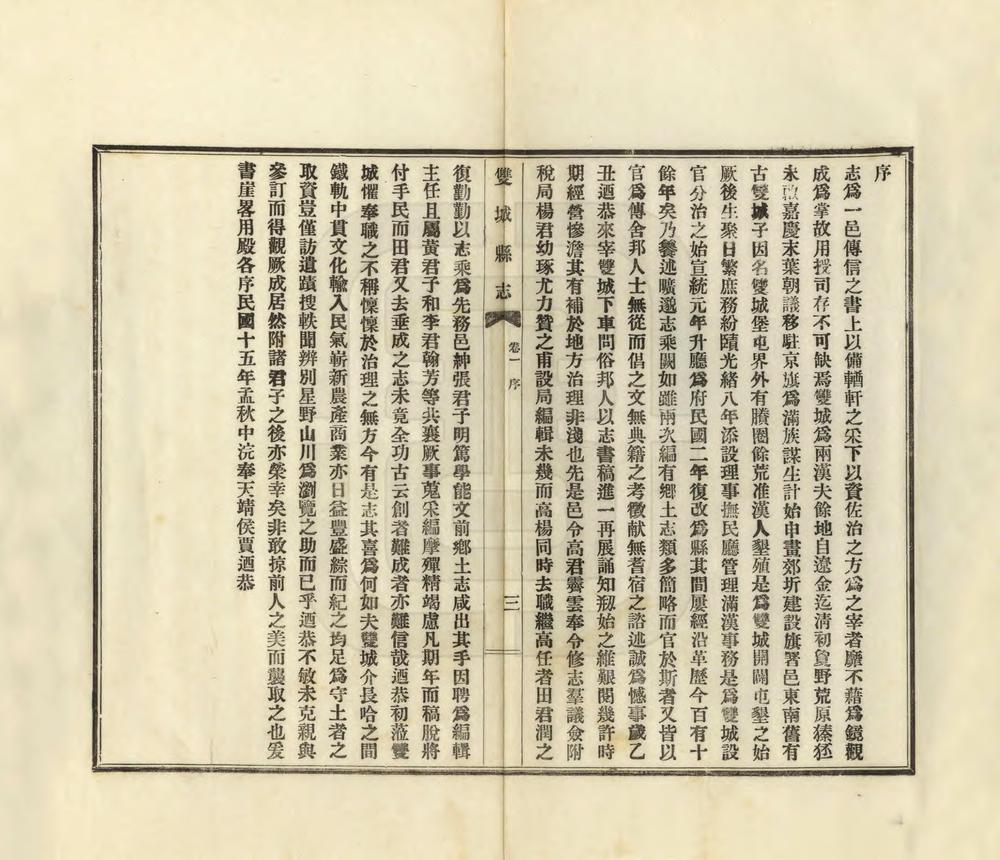 序
志爲一邑傳信之書上以備輶軒之采下以資佐治之方爲之宰者靡不藉爲鏡觀
成爲掌故用授司存不可缺焉雙城爲兩漢夫餘地自遼金迄清初負野荒原蓁狉
未啟嘉慶末葉朝議移駐京旗爲滿族謀生計始申畫郊圻建設旗署邑東南舊有
古雙城子因名雙城堡屯界外有賸圈餘荒准漢人墾殖是爲雙城開闢屯墾之始
厥後生聚日繁庶務紛賾光緒八年添設理事撫民廳管理滿漢事務是爲雙城設
官分治之始宣統元年升廳爲府民國二年復改爲縣其間屢經沿革歷今百有十
餘年矣乃纂述曠邈志乘闕如雖兩次編有鄉土志類多簡略而官於斯者又皆以
官爲傳舍邦人士無從而倡之文無典籍之考徵献無耆宿之諮述誠爲憾事歲乙
丑迺恭來宰雙城下車問俗邦人以志書稿進一再展誦知剏始之維艱閱幾許時
期經營慘澹其有補於地方治理非淺也先是邑令高君霽雲奉令修志羣議僉附
稅局楊君幼琢尤力贊之甫設局編輯未幾而高楊同時去職繼高任者田君潤之
雙城縣志
卷一 序
三
復勤勤以志乘爲先務邑紳張君子明篤學能文前鄉土志咸出其手因聘爲編輯
主任且屬黃君子和李君翰芳等共襄厥事蒐采編摩殫精竭慮凡期年而稿脫將
付手民而田君又去垂成之志未竟全功古云創者難成者亦難信哉迺恭初蒞雙
城懼奉職之不稱懍懍於治理之無方今有是志其喜爲何如夫雙城介長哈之間
鐵軌中貫文化輸入民氣嶄新農產商業亦日益豐盛綜而紀之均足爲守土者之
取資豈僅訪遺蹟搜軼聞辨別星野山川爲瀏覽之助而已乎迺恭不敏未克親與
參訂而得觀厥成居然附諸君子之後亦榮幸矣非敢掠前人之美而襲取之也爰
書崖畧用殿各序民國十五年孟秋中浣奉天靖侯賈迺恭